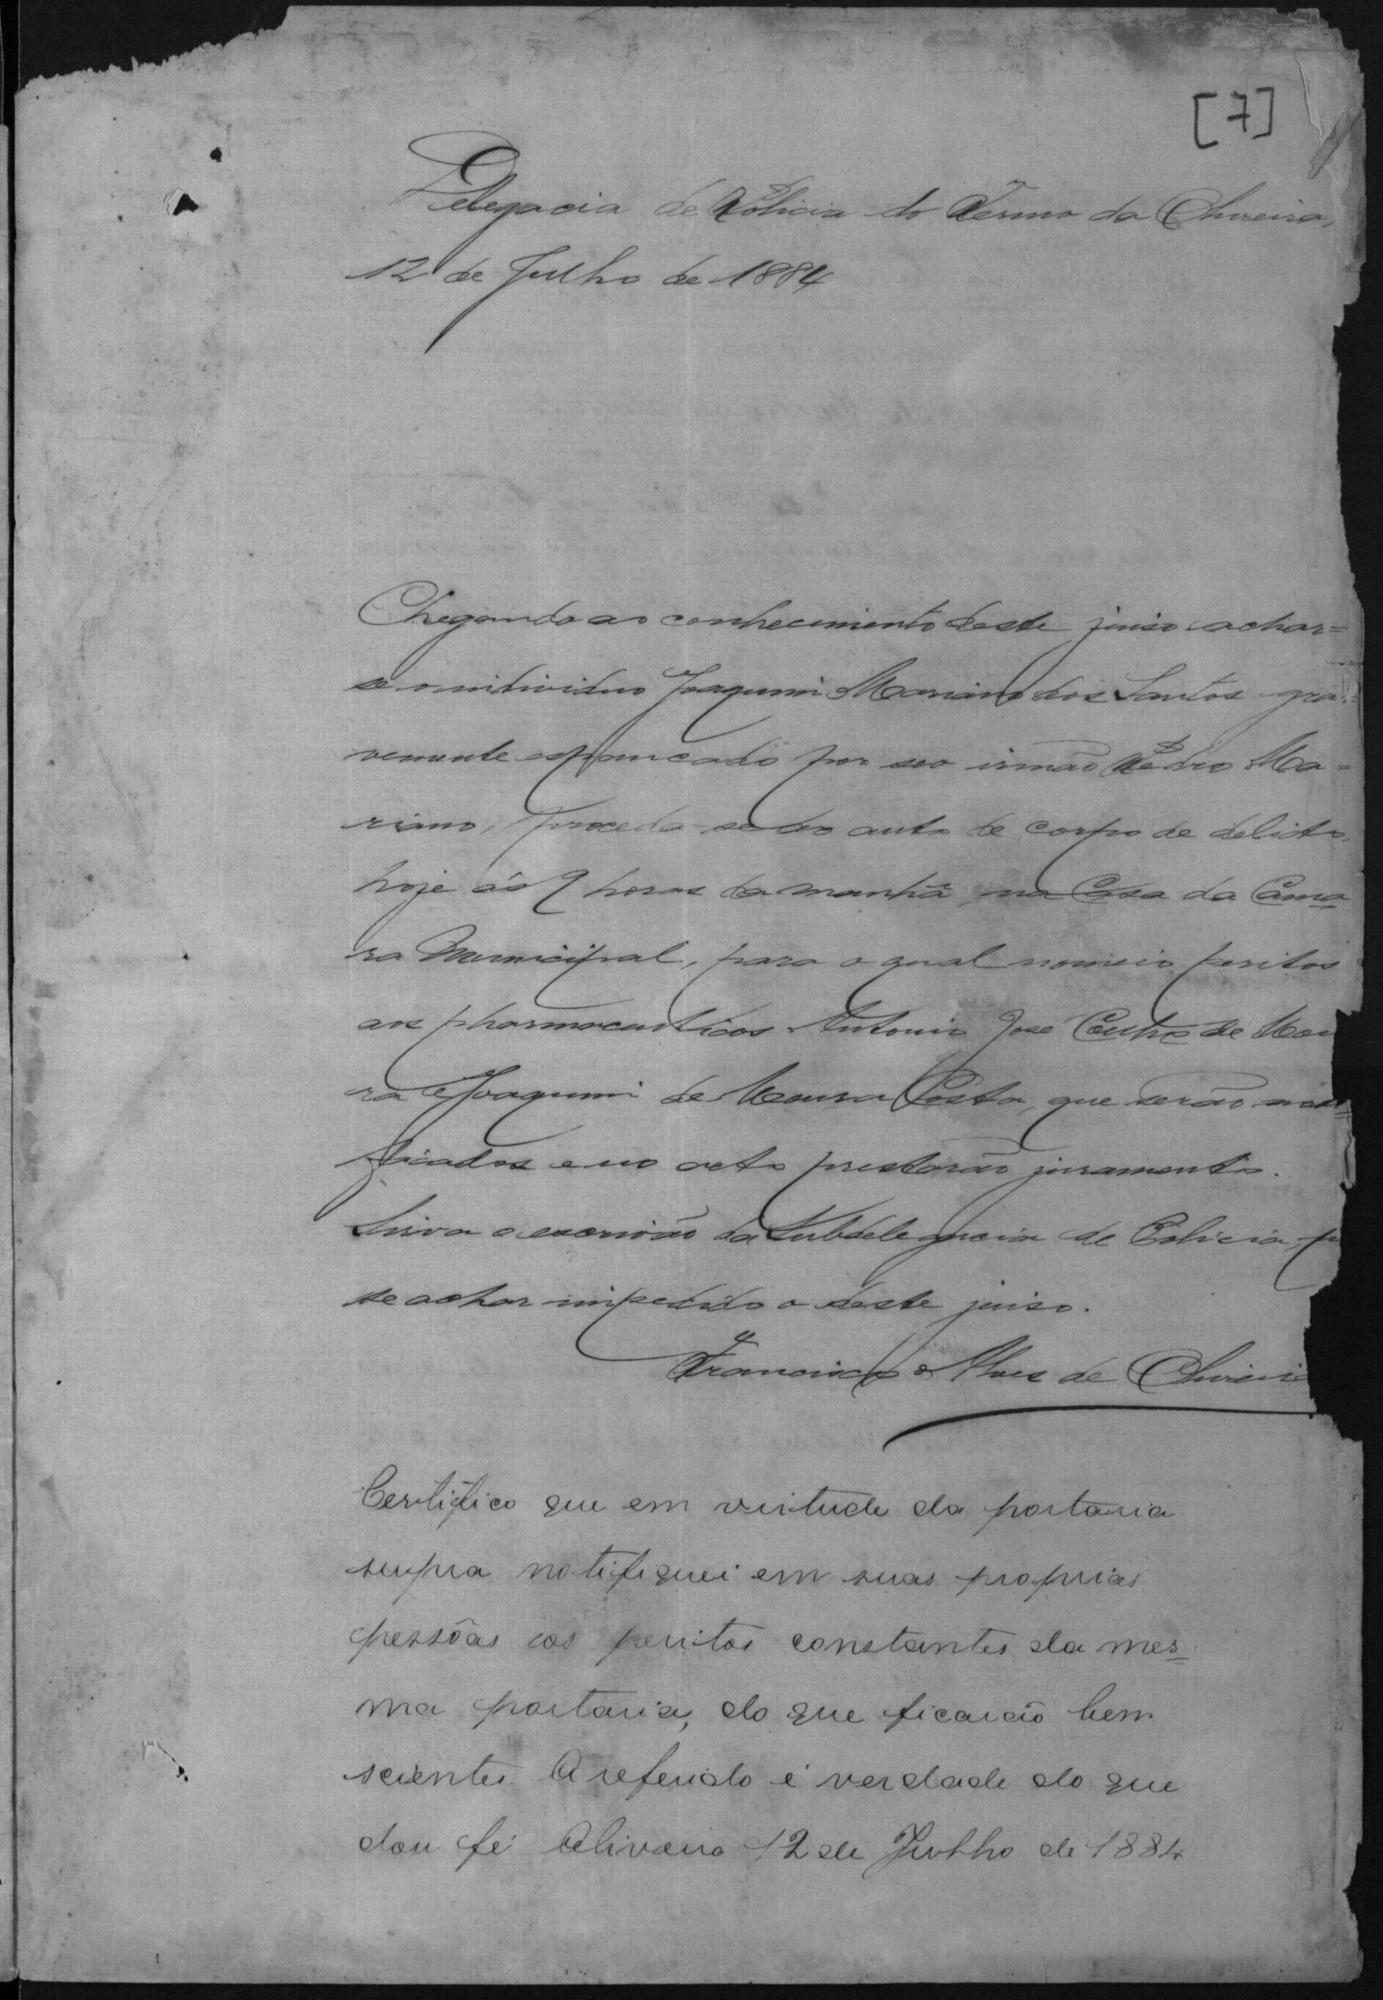 [7]
Delegacia de Policia do Termo da Oliveira,
12 de Julho de 1884
Chegando ao conhecimento deste juiso achar=
se o individuo Joaquim Mariano dos Santos gra=
vemente espancado por seo irmão Pedro Ma=
riano, proceda-se ao auto de corpo de delicto,
hoje ás 9 horas da manhã, na Casa da Cama=
ra Municipal, para o qual nomeio peritos
aos pharmaceuticos Antonio José Coelho de Mou
ra e Joaquim de Moura Costa, que serão noti=
ficados e no acto prestarão juramento.
Sirva o escrivão da Subdelegacia de Policia, p
se achar impedido o deste juiso.
Francisco Alves de Oliveira
Certifico que em virtude da portaria
supra notifiquei em suas proprias
pessôas aos peritos constantes da mes=
ma portaria, do que ficarão bem
scientes. O referido é verdade do que
dou fé Oliveira 12 de Julho de 1884